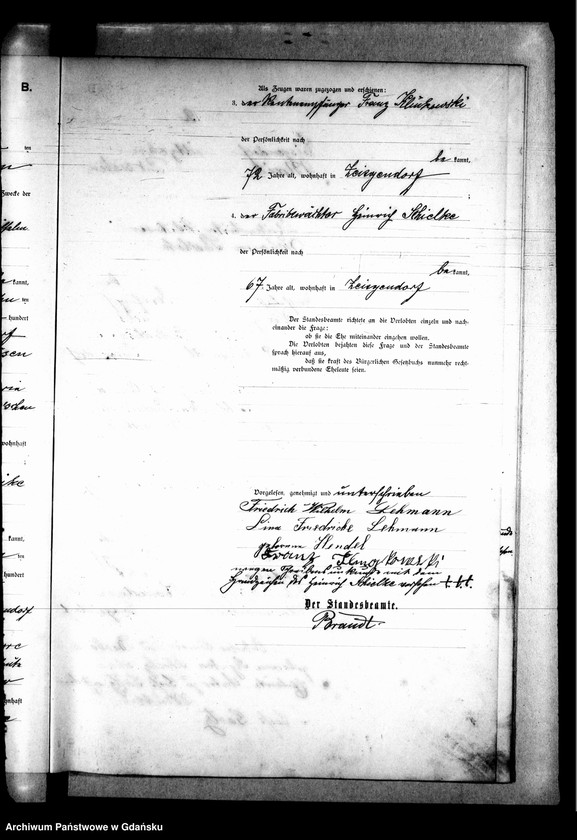 B.
Als Zeugen waren zugezogen und erschienen:
3. der Rentenempfänger Franz Klinkowski
der Persönlichkeit nach
be kannt,
72 Jahre alt, wohnhaft in Zeisgendorf
;
4. der Fabrikwächter Heinrich Schielke
der Persönlichkeit nach
be kannt,
67 Jahre alt, wohnhaft in Zeisgendorf
Der Standesbeamte richtete an die Verlobten einzeln und nach-
einander die Frage:
ob sie die Ehe miteinander eingehen wollen.
Die Verlobten bejahten diese Frage und der Standesbeamte
sprach hierauf aus,
daß sie kraft des Bürgerlichen Gesetzbuchs nunmehr recht-
mäßig verbundene Eheleute seien.
Vorgelesen, genehmigt und unterschrieben
Friedrich Wilhelm Lehmann
Lina Friedricke Lehmann
geborene Hendel
Franz
wegen Schreibensunkunde mit dem
Handzeichen des Heinrich Schielke versehen † † †
Der Standesbeamte.
Brandt.
Zwecke der
kannt,
ten
hundert
wohnhaft
kannt,
ten
hundert
Archiwum Państwowe w Gdańsku